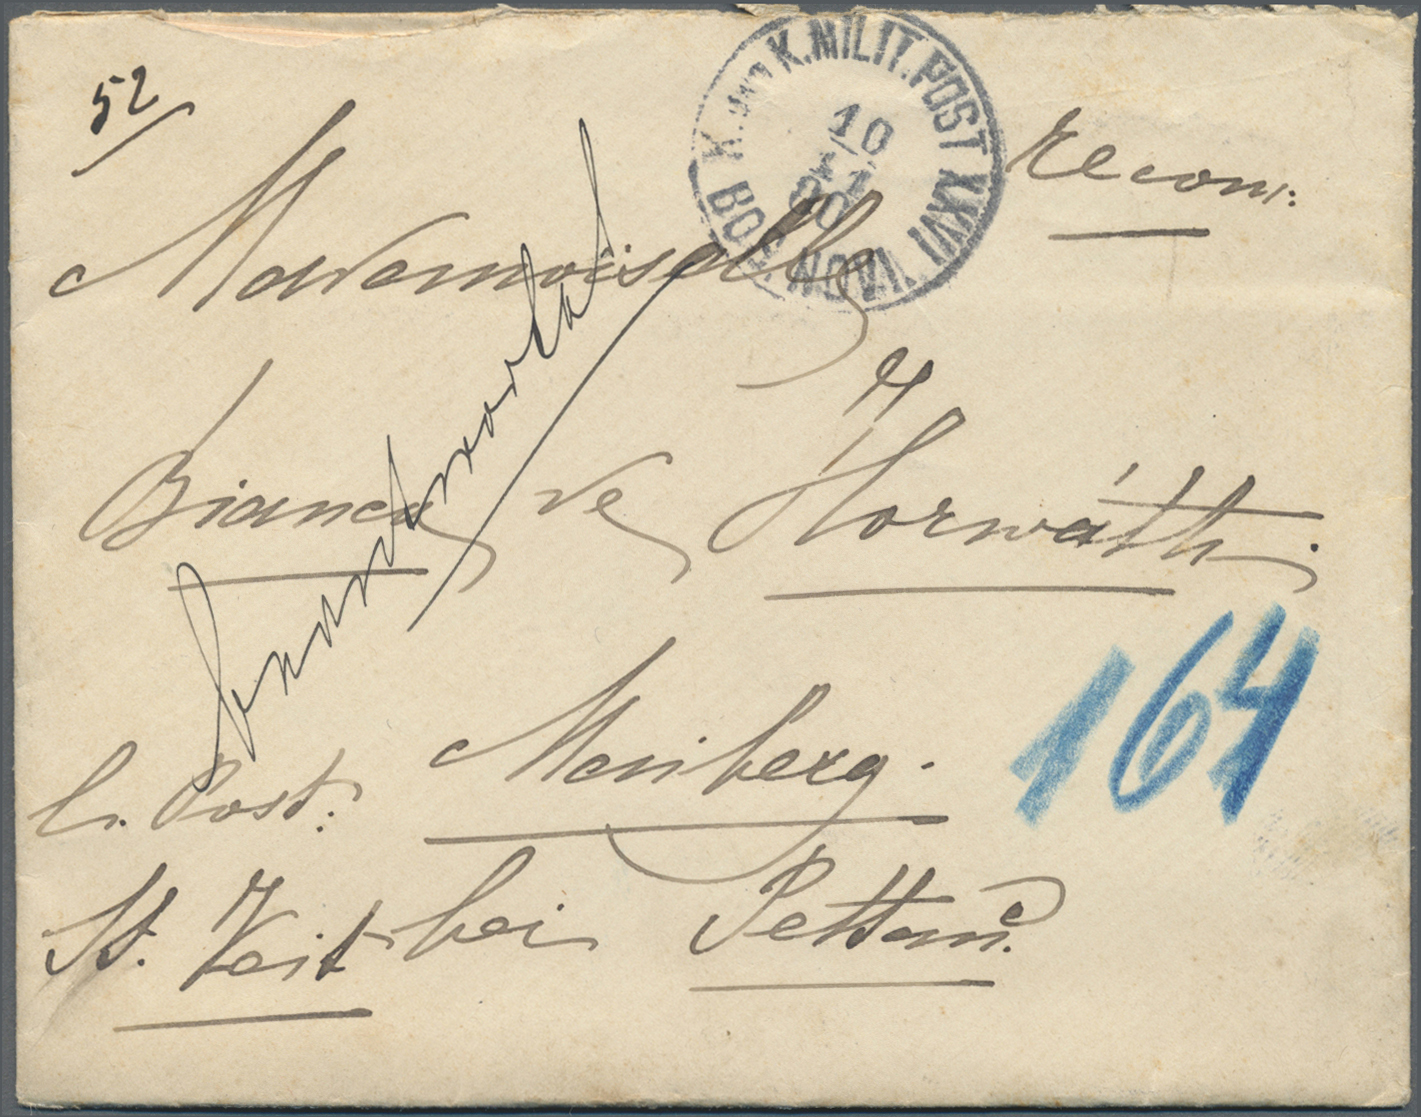 52
K. und K. MILIT. POST XXVII
10
11
90
BOS. NOVI
recom:
Mademoiselle
Bianca de Horváth.
164
l. Post:
St. Veit bei Pettau.